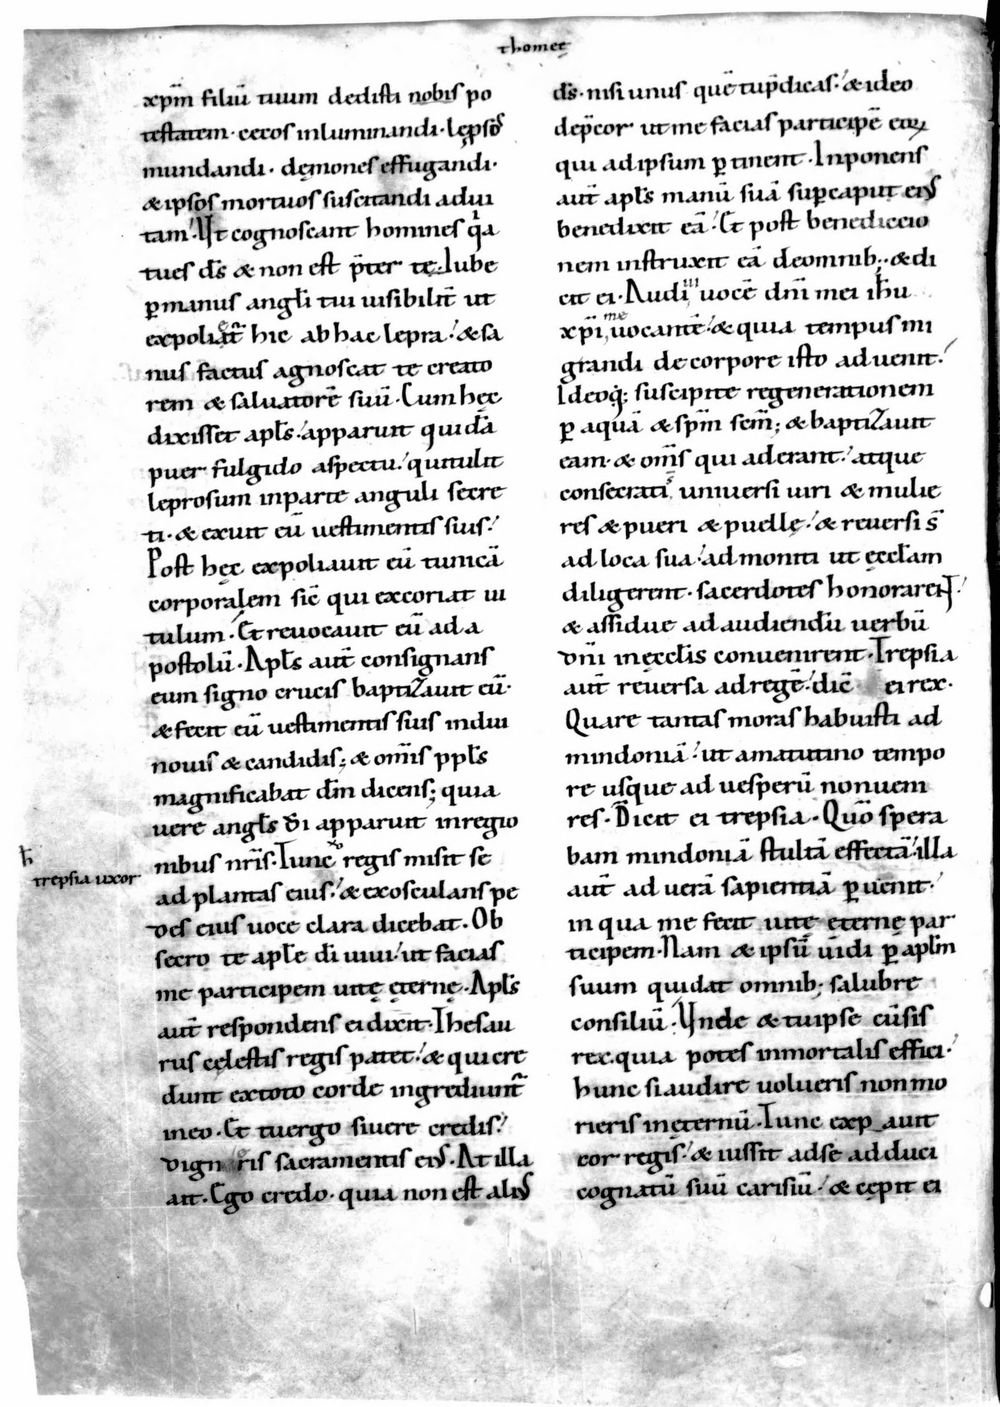 thomeę
xp̄m filiū tuum dedisti nobis po
testatem · cecos inluminandi · lep̄sos
mundandi · dęmones effugandi ·
& ipsos mortuos suscitandi ad ui
tam · Ut cognoscant homines q̄a
tu es d̄s & non est p̄ter te · Iube
ꝑ manus angl̄i tui uisibilit̄ ut
expoliat̄ hic ab hac lepra · & sa
nus factus agnoscat te creato
rem & saluatorē suū · Cum hęc
dixisset apl̄s · apparuit quidā
puer fulgido aspectu · qui tulit
leprosum in parte anguli secre
ti · & exuit eū uestimentis suis ·
Post hęc expoliauit eū tunicā
corporalem sic̄ qui excoriat ui
tulum · Et reuocauit eū ad a
postolū · Apl̄s aut̄ consignans
eum signo crucis baptizauit eū ·
& fecit eū uestimentis suis indui
nouis & candidis ; & om̄is ppl̄s
magnificabat dn̄m dicens ; quia
uere angl̄s d̄i apparuit in regio
nibus nr̄is · Tunc uxor regis misit se
trepsia uxor
ad plantas eius · & exosculans pe
des eius uoce clara dicebat · Ob
secro te apl̄e d̄i uiui · ut facias
me participem uitę ęternę · Apl̄s
aut̄ respondens ei dixit · Thesau
rus cęlestis regis patet · & qui cre
dunt ex toto corde ingrediunt̄
in eo · Et tu ergo si uere credis ·
ris sacramentis eius · At illa
ait · Ego credo · quia non est alius
d̄s · nisi unus quē tu p̄dicas · & ideo
dep̄cor ut me facias participē eoꝝ
qui ad ipsum ꝑtinent · Inponens
aut̄ apl̄s manū suā sup̄ caput eius
benedixit eā · Et post benediccio
nem instruxit eā de omnib; · & di
cit ei · Audiui uocē dn̄i mei ih̄u
xp̄i me uocantē · & quia tempus mi
grandi de corpore isto aduenit ·
Ideoq; suscipite regenerationem
ꝑ aquā & sp̄m sc̄m ; & baptizauit
eam · & om̄s qui aderant · atque
consecrati s̄ uniuersi uiri & mulie
res & pueri & puellę · & reuersi s̄
ad loca sua · admoniti ut ęccl̄am
diligerent · sacerdotes honorarent ·
& assidue ad audiendū uerbū
dn̄i in ęccl̄is conuenirent · Trepsia
aut̄ reuersa ad regē · dic̄ ei rex ·
Quare tantas moras habuisti ad
mindoniā · ut a matutino tempo
re usque ad uesperū non uem
res · Dicit ei trepsia · Quō spera
bam mindoniā stultā effectā · illa
aut̄ ad uerā sapientiā ꝑuenit ·
in qua me fecit uitę ęternę par
ticipem · Nam & ipsū uidi ꝑ apl̄m
suum qui dat omnib; salubre
consiliū · Unde & tu ipse cū sis
rex · quia potes inmortalis effici ·
hunc si audire uolueris non mo
rieris in ęternū · Tunc expauit
cor regis · & iussit ad se adduci
cognatū suū carisiū · & cępit ei